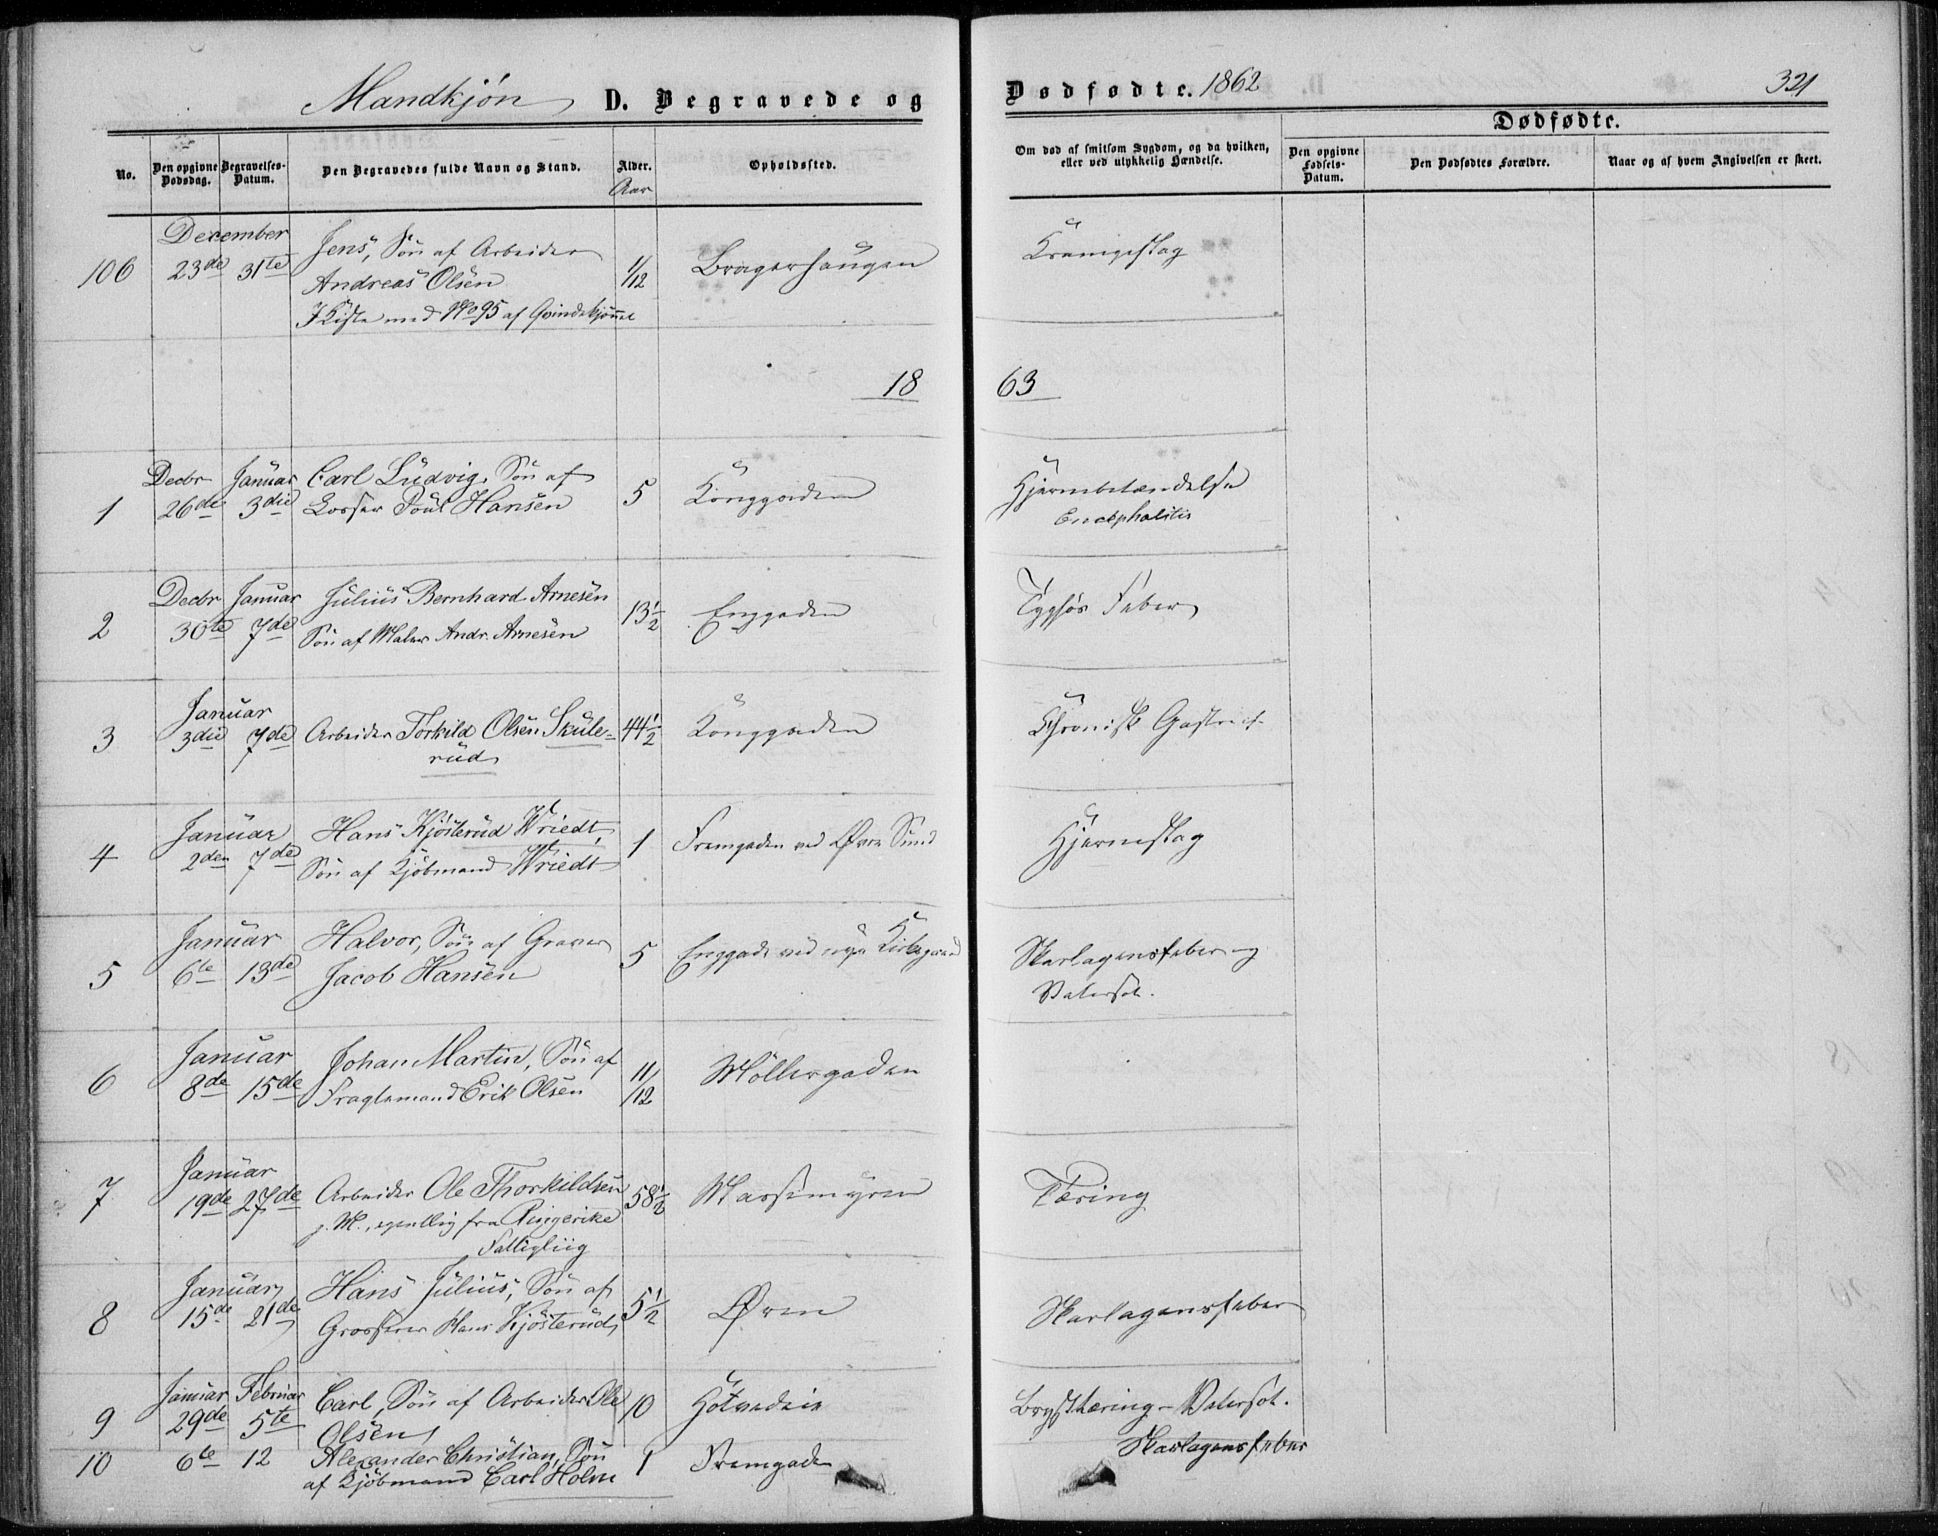 Mandkjøn D. Begravede og Dødfødte. 1862 321
No.
Den opgivne Dødsdag.
Begravelses-Datum.
Den Begravedes fulde Navn og Stand.
Alder.
Aar
Opholdssted.
Om død af smitsom Sygdom, og da hvilken, eller ved ulykkelig Hændelse.
Dødfødte.
Den opgivne Fødsels-Datum.
Den Dødfødtes Forældre.
Naar og af hvem Angivelsen er skeet.
December
106 23de 31te Jens, Søn af Arbeider
Andreas Olsen 1/12 Bragerhaugen Krampeslag
I Kiste med No 95 af Qvindekjønnet
18 63
Decbr Januar Carl Ludvig, Søn af
1 26de 3die Losser Poul Hansen 5 Konggaden Hjernebetændelse
Encephalitis
Decbr Januar Julius Bernhard Arnesen
2 30te 7de Søn af Maler Andr. Arnesen 13½ Enggaden Typhøs Feber
Januar
3 3die 7de Arbeider Torkild Olsen Skule=
rud 44½ Konggaden Chronisk
Januar Hans Kjösterud Wriedt,
4 2den 7de Søn af Kjöbmand Wriedt 1 Fremgaden ved Øvre Sund Hjerneslag
Januar Halvor, Søn af Graver
5 6te 13de Jacob Hansen 5 Enggade ved nye Kirkegaard Skarlagensfeber og
Vatersot.
Januar Johan Martin, Søn af
6 8de 15de Fragtemand Erik Olsen 11/12 Möllergaden
Januar
7 19de 27de Arbeider Ole Thorkildsen 58½ Tæring
g. M., egentlig fra Ringerike
Fattigliig
Januar Hans Julius, Søn af
8 15de 21de Grosserer Hans Kjösterud 5½ Øren Skarlagensfeber
Januar Februar
9 29de 5te Carl, Søn af Arbeider Ole
Olsen 10 Hotvedeie Brysttæring - Vatersot.
10 6te 12 Alexander Christian, Søn
af Kjöbmand Carl Holm 1 Fremgade Skarlagensfeber